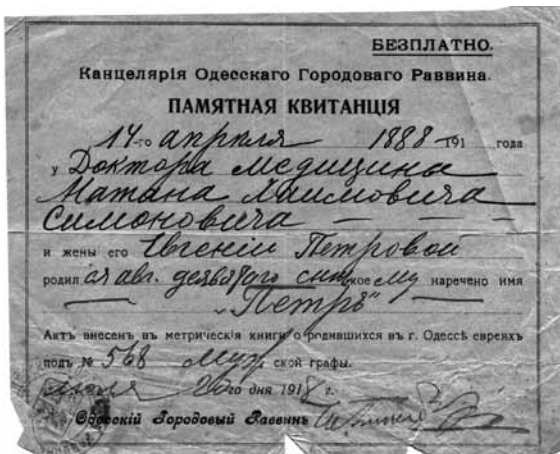 БЕЗПЛАТНО.
Канцелярія Одесскаго Городоваго Раввина.
ПАМЯТНАЯ КВИТАНЦІЯ
14-го апреля 1888 191 года
у Доктора медицины
Матана Хаимовича
Симоновича
и жены его Евгеніи Петровой
родился авг. девятого сын кое му наречено имя
„Петръ"
Актъ внесенъ въ метрическія книги о родившихся въ г. Одессѣ евреяхъ
подъ № 568 муж ской графы.
июля го дня 1918 г.
Одесскій Городовый Раввинъ